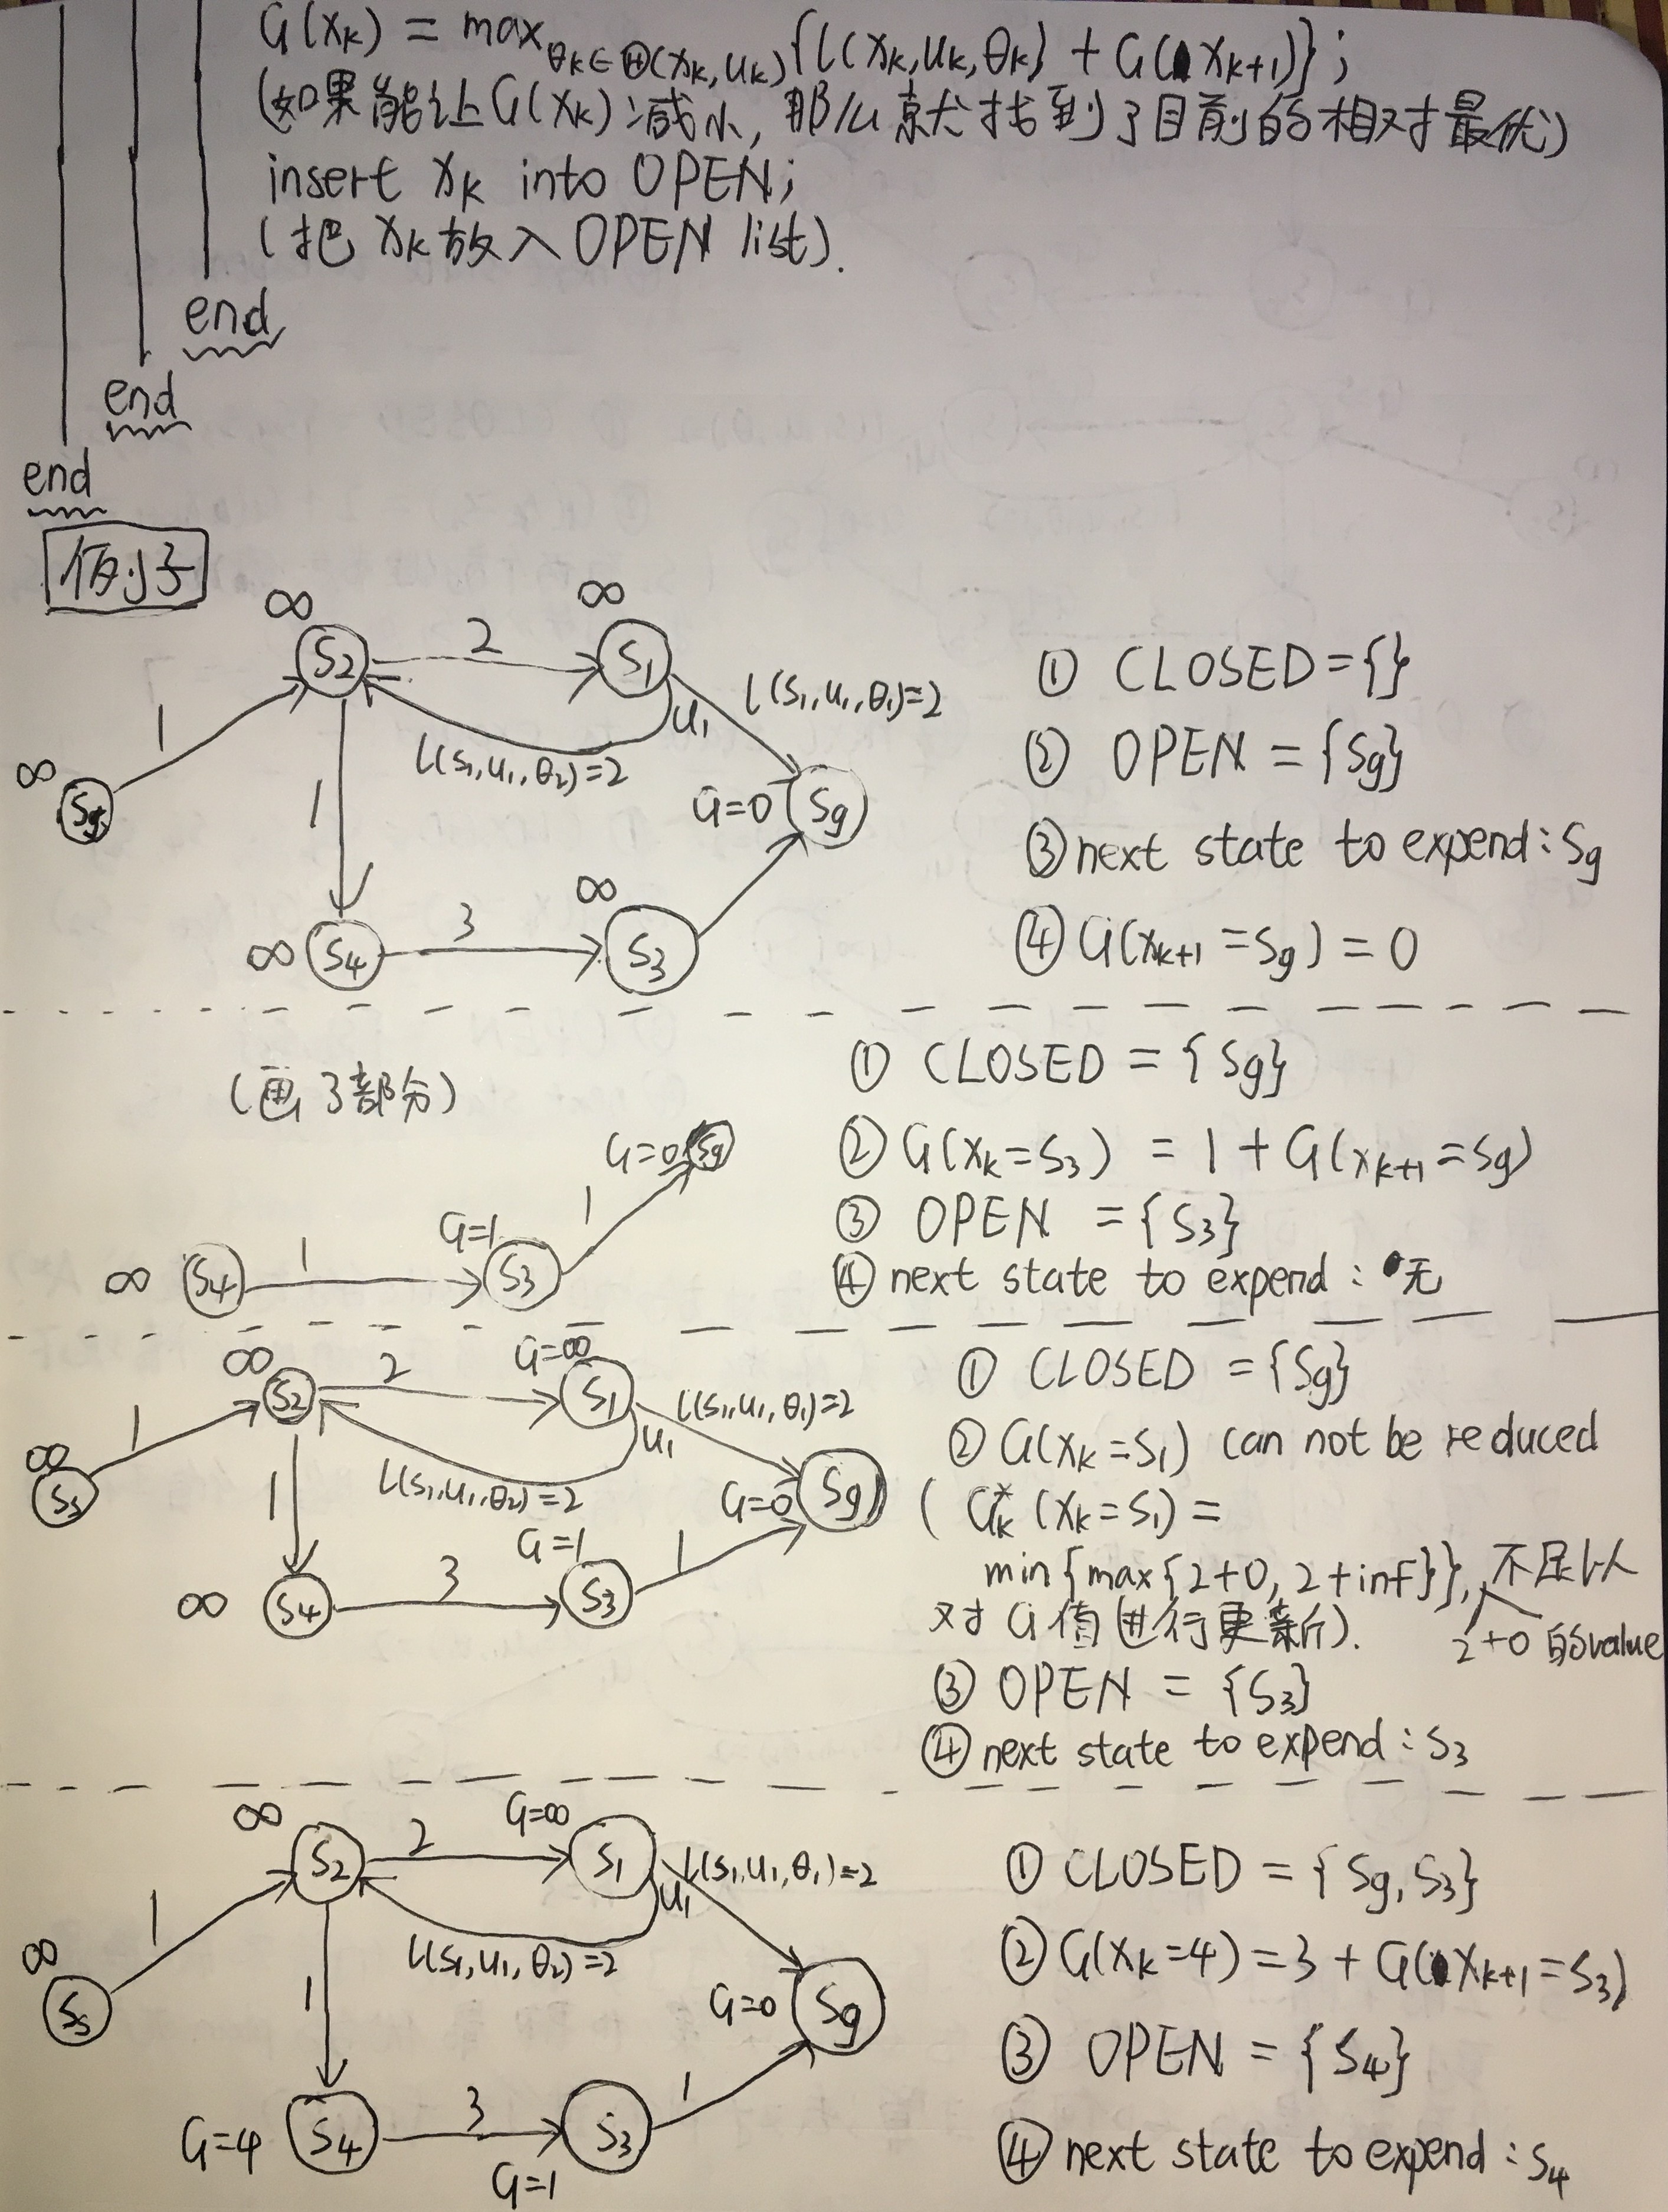 G(xk) = max θk∈Θ(xk,uk) {l(xk,uk,θk) + G(xk+1)};
(如果能让G(xk)减小,那么就找到了目前的相对最优)
insert xk into OPEN;
(把xk放入OPEN list).
end
end
end
例子
∞ ∞
S2 2 S1
l(s1,u1,θ1)=2
1 u1
∞ l(s1,u1,θ2)=2
1 G=0 Sg
∞
∞ S4 3 S3
① CLOSED={}
② OPEN = {Sg}
③ next state to expend: Sg
④ G(xk+1=Sg) = 0
(画了部分)
G=0 Sg
G=1 1
∞ S4 1 S3
① CLOSED = {Sg}
② G(xk=S3) = 1 + G(xk+1=Sg)
③ OPEN = {S3}
④ next state to expend: 无
∞ G=∞
S2 2 S1 l(s1,u1,θ1)=2
1 u1
∞ l(s1,u1,θ2)=2
Ss 1 G=0 Sg
G=1 1
∞ S4 3 S3
① CLOSED = {Sg}
② G(xk=S1) can not be reduced
( G*k (xk=S1) =
min{max{2+0, 2+inf}}, 不足以
对G值进行更新).
2+0的value
③ OPEN = {S3}
④ next state to expend: S3
∞ G=∞
S2 2 S1 l(s1,u1,θ1)=2
1 u1
∞ l(s1,u1,θ2)=2
Ss 1 G=0 Sg
1
G=4 S4 3 S3
G=1
① CLOSED = {Sg, S3}
② G(xk=4) = 3 + G(xk+1=S3)
③ OPEN = {S4}
④ next state to expend: S4